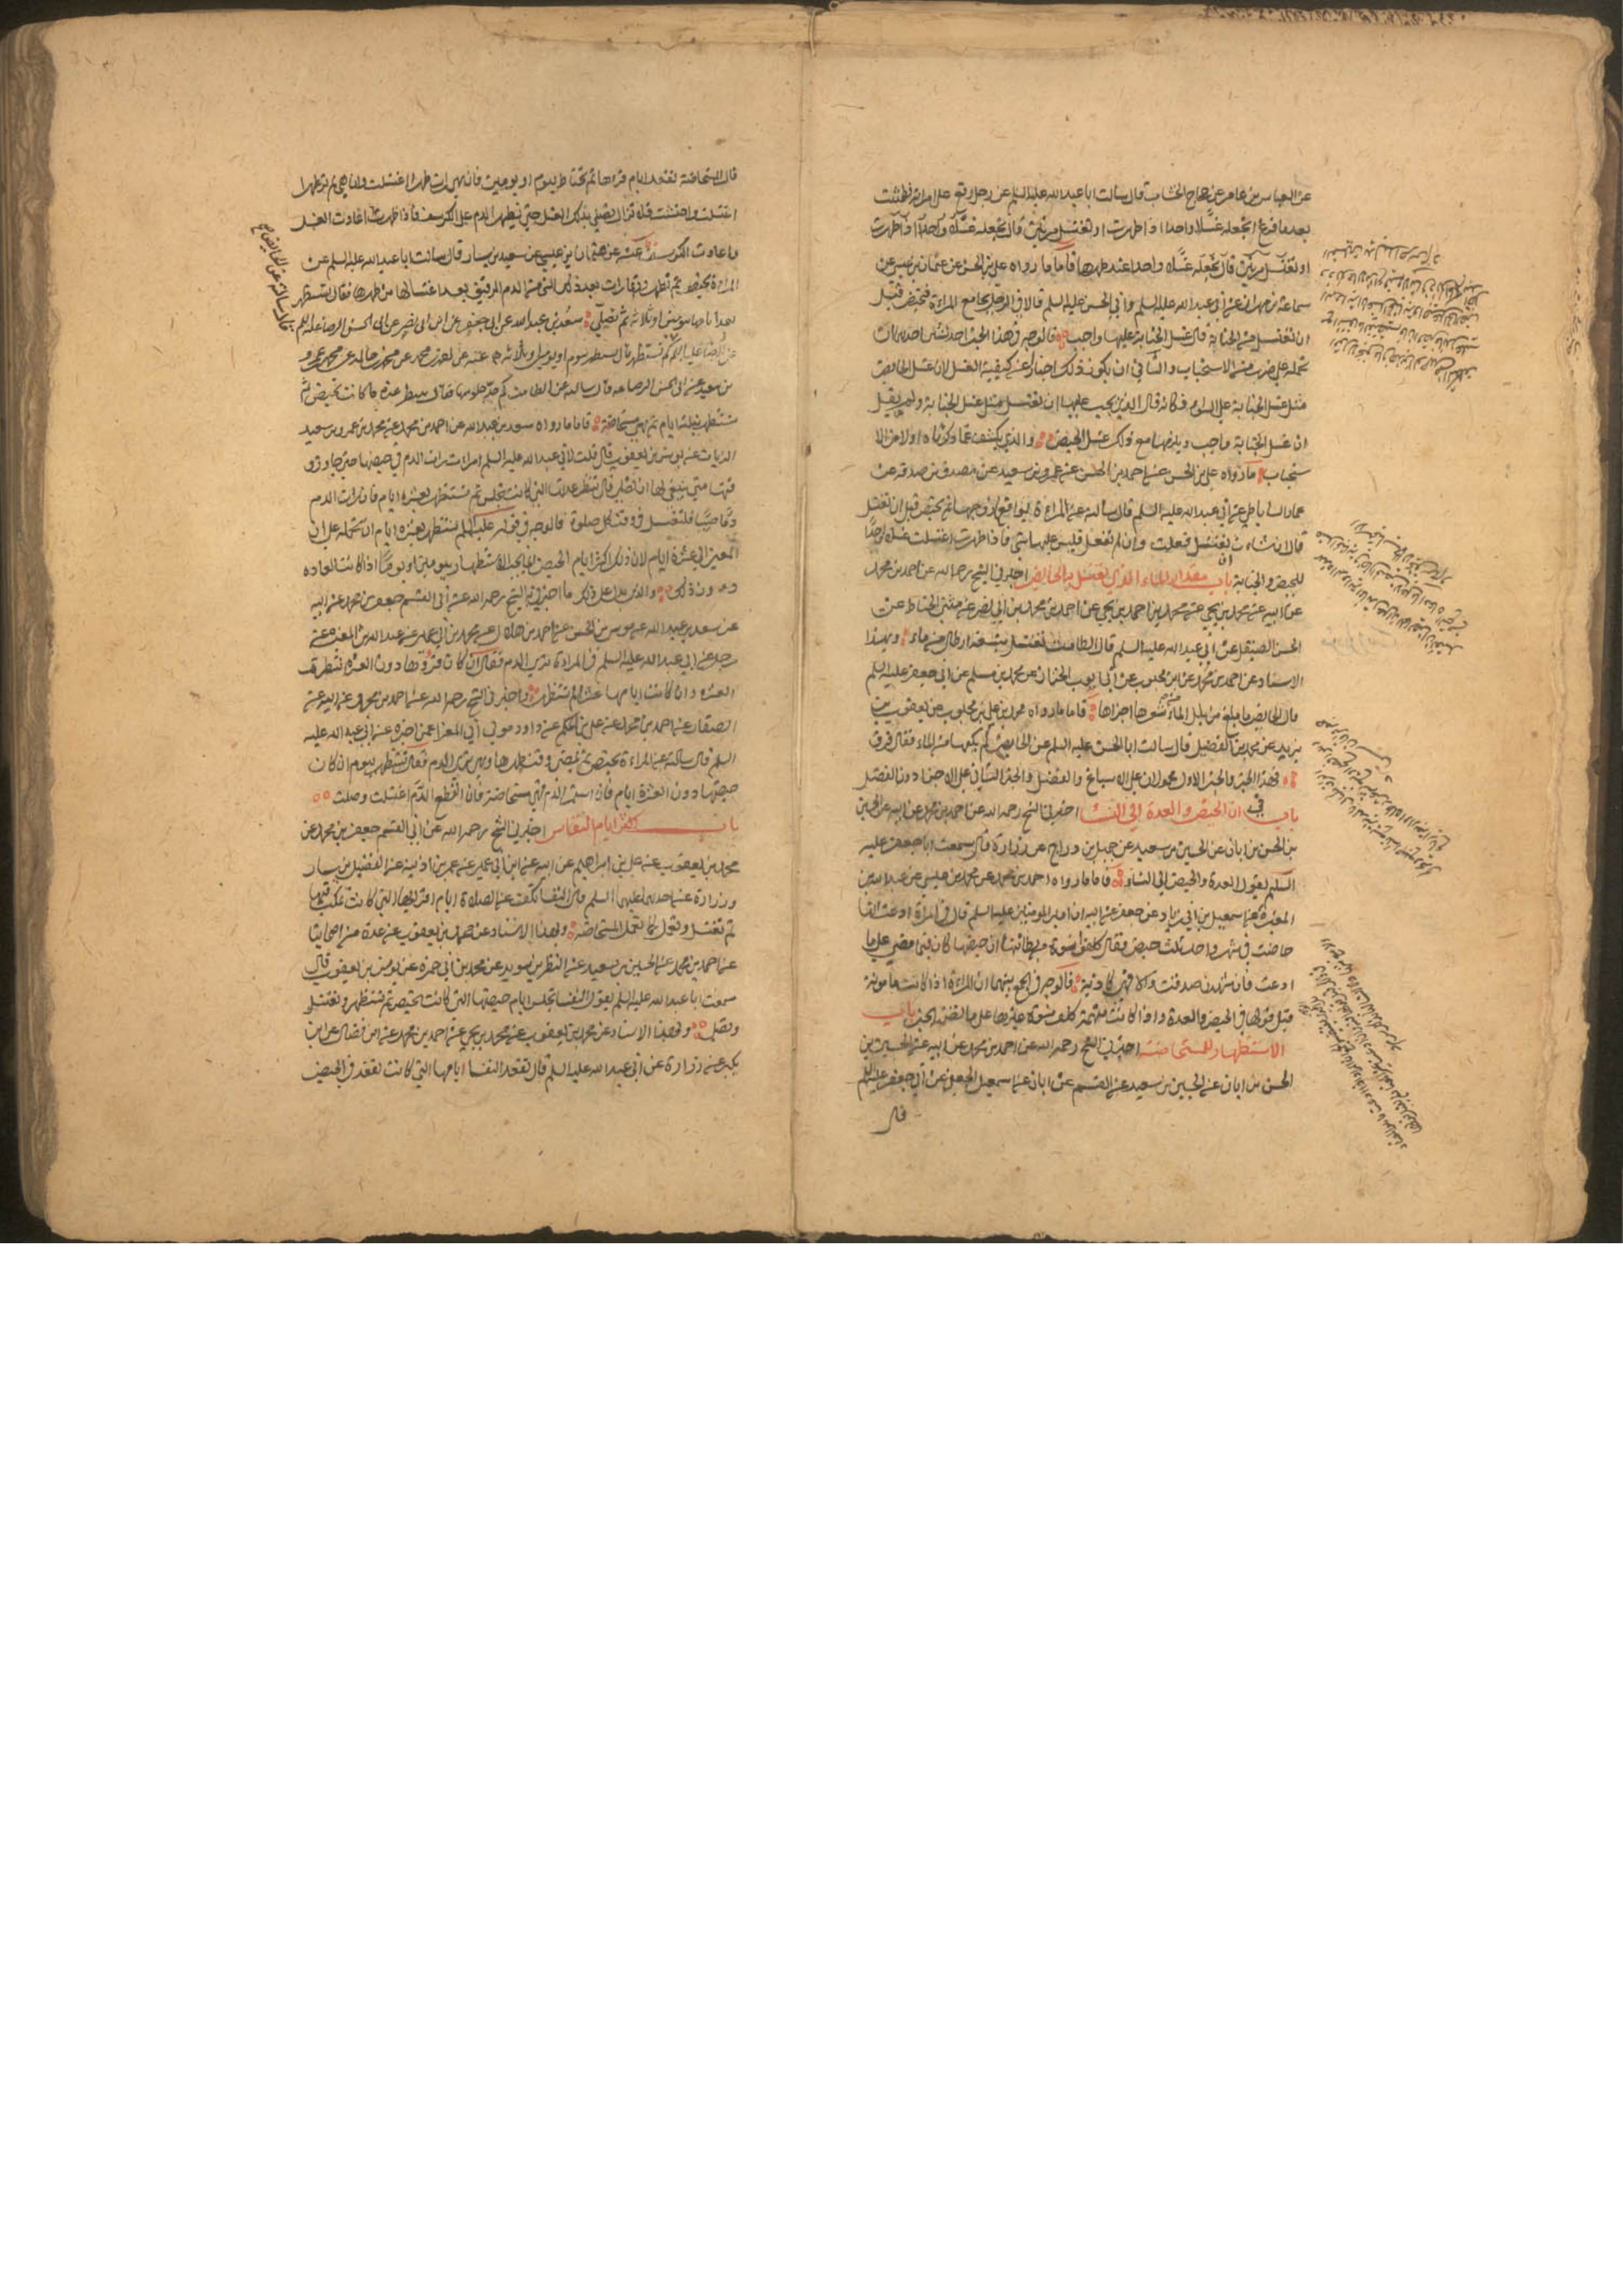 عن العباس بن عامر عن حجاج الخشاب قال سالت ابا عبد الله عليه السلم عن رجل وقع على امراته فطمثت
بعد ما فرغ اتجعله غسلا واحدا اذا طهرت او تغتسل مرتين قال تجعله غسلا واحدا اذا طهرت
او تغتسل مرتين قال تجعله غسلا واحدا عند طهرها فاما ما رواه علي بن الحسن عن عثمان بن عيسى عن
سماعة بن مهران عن ابي عبد الله عليه السلم وابي الحسن عليه السلم قالا في الرجل يجامع المراءة فتحيض قبل
ان تغتسل من الجنابة قال غسل الجنابة عليها واجب فالوجه في هذا الخبر احد شيئين احدهما ان
نحمله على ضرب من الاستحباب والثاني ان يكون ذلك اخبارا عن كيفية الغسل لان غسل الحايض
مثل غسل الجنابة على السواء فكانه قال الذي يجب عليها ان تغتسل مثل غسل الجنابة ولم يقل
ان غسل الجنابة واجب ويلزمها مع ذلك غسل الحيض والذي يكشف عما ذكرناه اولا من الا
ستحباب ما رواه علي بن الحسن عن احمد بن الحسن عن عمرو بن سعيد عن مصدق بن صدقة عن
عمار الساباطي عن ابي عبد الله عليه السلم قال سالته عن المراءة يواقعها زوجها ثم تحيض قبل ان تغتسل
قال ان شاءت ان تغتسل فعلت وان لم تفعل فليس عليها شي فاذا طهرت اغتسلت غسلا واحدا
للحيض والجنابة باب مقدار الماء الذي تغتسل به الحايض اخبرني الشيخ رحمه الله عن احمد بن محمد
عن ابيه عن محمد بن يحيى عن محمد بن احمد بن يحيى عن احمد بن محمد بن ابي نصر عن مثنى الحناط عن
الحسن الصيقل عن ابي عبد الله عليه السلم قال الطامث تغتسل بتسعة ارطال من ماء وبهذا
الاسناد عن احمد بن محمد عن ابن محبوب عن ابي ايوب الخزاز عن محمد بن مسلم عن ابي جعفر عليه السلم
قال الحايض ما بلغ من بلل الماء من شعرها اجزاها فاما ما رواه محمد بن علي بن محبوب عن يعقوب بن
يزيد عن محمد بن الفضيل قال سالت ابا الحسن عليه السلم عن الحايض كم يكفيها من الماء فقال فرق
فهذا الخبر والخبر الاول محمولان على الاسباغ والفضل والخبر الثاني على الاجزا دون الفضل
باب في ان الحيض والعدة الى النسا اخبرني الشيخ رحمه الله عن احمد بن محمد عن ابيه عن الحسين
بن الحسن بن ابان عن الحسين بن سعيد عن جميل بن دراج عن زرارة قال سمعت ابا جعفر عليه
السلم يقول العدة والحيض الى النساء فاما ما رواه احمد بن محمد عن محمد بن عيسى عن عبد الله بن
المغيرة عن اسمعيل بن ابي زياد عن جعفر عن ابيه ان امير المومنين عليه السلم قال في امراة ادعت انها
حاضت في شهر واحد ثلث حيض فقال كلفوا نسوة من بطانتها ان حيضها كان فيما مضى على ما
ادعت فان شهدن صدقت والا فهي كاذبة فالوجه في الجمع بينهما ان المراءة اذا كانت مامونة
قبل قولها في الحيض والعدة واذا كانت متهمة كلف نسوة غيرها على ما تضمنه الخبر باب
الاستظهار للمستحاضة اخبرني الشيخ رحمه الله عن احمد بن محمد عن ابيه عن الحسين بن
الحسن بن ابان عن الحسين بن سعيد عن القسم عن ابان عن اسمعيل الجعفي عن ابي جعفر عليه السلم
قال
قال المستحاضة تقعد ايام قرءها ثم تحتاط بيوم او يومين فان هي رات طهرا اغتسلت وان هي لم تر طهرا
اغتسلت واحتشت فلا تزال تصلي بذلك الغسل حتى يظهر الدم على الكرسف فاذا ظهرت اعادت الغسل
واعادت الكرسف عنه عن عثمان بن عيسى عن سعيد بن يسار قال سالت ابا عبد الله عليه السلم عن
المراءة تحيض ثم تطهر فربما رات بعد ذلك الشي من الدم الرقيق بعد اغتسالها من طهرها فقال تستظهر
بعد ايامها بيومين او ثلاثة ثم تصلي سعد بن عبد الله عن ابي جعفر عن ابن ابي نصر عن ابي الحسن الرضا عليه السلم
تستظهر قال تستظهر بيوم او يومين او ثلاثة عنه عن احمد بن محمد عن محمد بن خالد عن محمد بن عمرو
بن سعيد عن ابي الحسن الرضا عليه السلم قال سالته عن الطامث كم حد جلوسها فقال تنتظر عدة ما كانت تحيض ثم
تستظهر بثلثة ايام ثم هي مستحاضة فاما ما رواه سعد بن عبد الله عن احمد بن محمد عن محمد بن عمرو بن سعيد
الزيات عن يونس بن يعقوب قال قلت لابي عبد الله عليه السلم امراءة رات الدم في حيضها حتى جاوز و
قتها متى ينبغي لها ان تصلي قال تنظر عدتها التي كانت تجلس ثم تستظهر بعشرة ايام فان رات الدم
دما صبيبا فلتغتسل في وقت كل صلوة فالوجه في قوله عليه السلم تستظهر بعشرة ايام ان نحمله على ان
المعنى الى عشرة ايام لان ذلك اكثر ايام الحيض وانما يجب الاستظهار بيوم او يومين اذا كانت العادة
دون ذلك والذي يدل على ذلك ما اخبرني به الشيخ رحمه الله عن ابي القسم جعفر بن محمد عن ابيه
عن سعد بن عبد الله عن موسى بن الحسن عن احمد بن هلال عن محمد بن ابي عمير عن عبد الله بن المغيرة عن
رجل عن ابي عبد الله عليه السلم في المراءة ترى الدم فقال ان كان قروها دون العشرة انتظرت
العشرة وان كانت ايامها عشرا لم تستظهر واخبرني الشيخ رحمه الله عن احمد بن محمد عن ابيه عن
الصفار عن احمد بن محمد عن علي بن الحكم عن داود مولى ابي المعزا عمن اخبره عن ابي عبد الله عليه
السلم قال سالته عن المراءة تحيض ثم يمضي وقت طهرها وهي ترى الدم فقال تستظهر بيوم ان كان
حيضها دون العشرة ايام فان استمر الدم فهي مستحاضة فان انقطع الدم اغتسلت وصلت
باب اكثر ايام النفاس اخبرني الشيخ رحمه الله عن ابي القسم جعفر بن محمد عن
محمد بن يعقوب عن علي بن ابراهيم عن ابيه عن ابن ابي عمير عن عمر بن اذينة عن الفضيل بن يسار
وزرارة عن احدهما عليهما السلم قال النفسا تكف عن الصلاة ايام اقرايها التي كانت تمكث فيها
ثم تغتسل وتعمل كما تعمل المستحاضة وبهذا الاسناد عن محمد بن يعقوب عن عدة من اصحابنا
عن احمد بن محمد عن الحسين بن سعيد عن النظر بن سويد عن محمد بن ابي حمزة عن يونس بن يعقوب قال
سمعت ابا عبد الله عليه السلم يقول النفسا تجلس ايام حيضها التي كانت تحيض ثم تستظهر وتغتسل
وتصلي وبهذا الاسناد عن محمد بن يعقوب عن محمد بن يحيى عن احمد بن محمد عن ابن فضال عن ابن
بكير عن زرارة عن ابي عبد الله عليه السلم قال تقعد النفسا ايامها التي كانت تقعد في الحيض